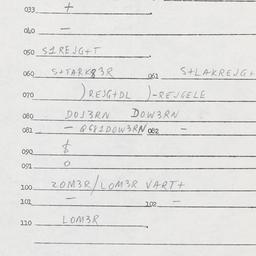 033 +
040 —
050 S1REJG+T
060 S+TARK83R 061 S+LAKREJG+
070 )REJG+DL )-REJGELE
080 DOJ3RN DOW3RN
081 — Q681DOW3RN 082 —
090 $
091 0
100 ZOM3R/LOM3R VART+
101 — 102 —
110 LOM3R